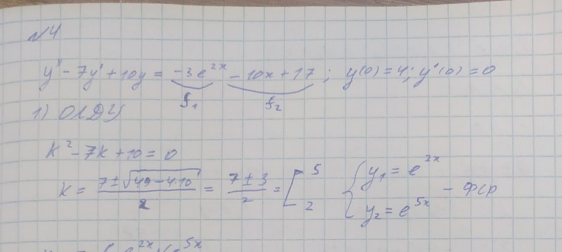 №4
y'' - 7y' + 10y = -3e^{2x} - 10x + 17 ; y(0) = 4; y'(0) = 0
f₁ f₂
1) ОЛДУ
k² - 7k + 10 = 0
k = \frac{7 ± \sqrt{49 - 4·10}}{2} = \frac{7 ± 3}{2} = [ 5 2 { y₁ = e^{2x} y₂ = e^{5x} - ФСР
e^{2x} e^{5x}